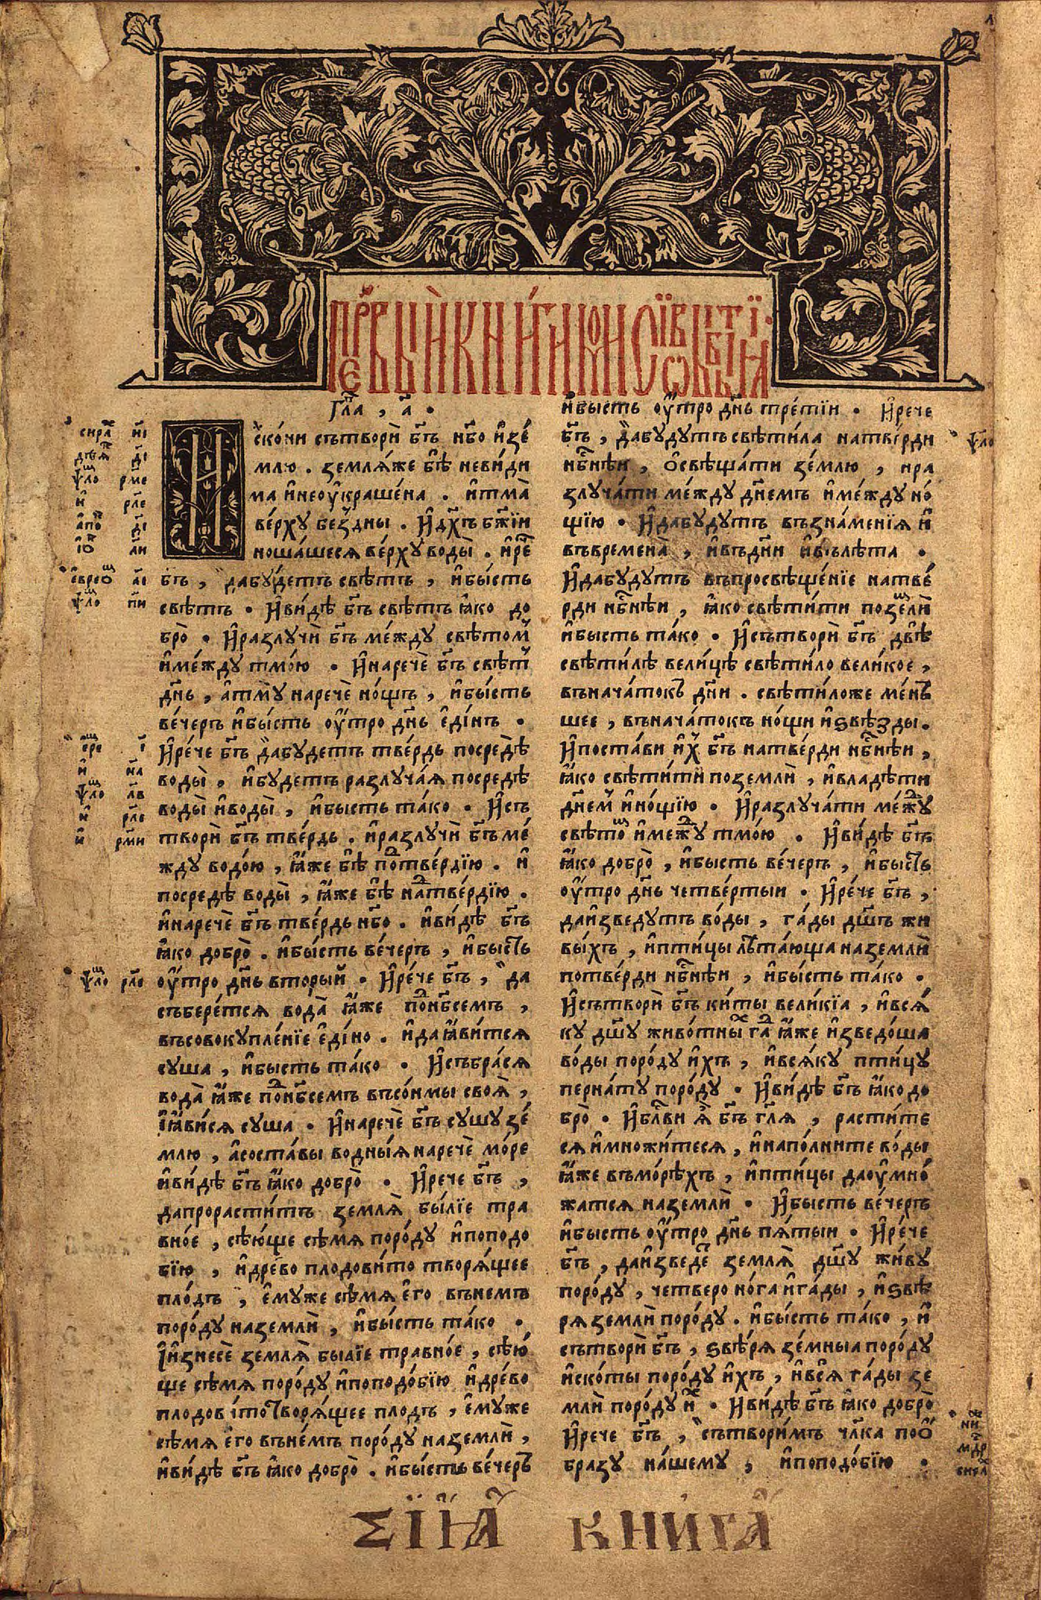 Гл҃а , а҃ .
И҆скони сътвори бг҃ъ нб҃о и҆зе́
млю . землѧ́же бѣ̀ неви́ди
ма и҆неоу҆кра́шена . и҆тма̀
ве́рху бе́здны . И҆дх҃ъ бж҃їи
ноша́шесѧ ве́рху воды̀ . и҆ре́
бг҃ъ , дабу́детъ свѣ́тъ , и҆бы́сть
свѣ́тъ . И҆ви́дѣ бг҃ъ свѣ́тъ ꙗ҆́ко до
бро̀ . И҆разлучѝ бг҃ъ ме́жду свѣ́том
и҆ме́жду тмо́ю . И҆наречѐ бг҃ъ свѣ́т
дн҃ь , а҆тму̀ наречѐ но́щъ , и҆бы́сть
ве́черъ и҆бы́сть оу҆́тро дн҃ь є҆ди́нъ .
И҆ре́че бг҃ъ дабу́детъ тве́рдь посредѣ̀
воды̀ , и҆бу́детъ разлуча́ѧ посредѣ̀
воды̀ и҆воды̀ , и҆бы́сть та́ко . И҆съ
творѝ бг҃ъ тве́рдь . и҆разлучѝ бг҃ъ ме́
жду водо́ю , ꙗ҆́же бѣ̀ подтве́рдїю . и҆
посредѣ̀ воды̀ , ꙗ҆́же бѣ̀ надтве́рдїю .
и҆наречѐ бг҃ъ тве́рдь нб҃о . и҆ви́дѣ бг҃ъ
ꙗ҆́ко добро̀ . и҆бы́сть ве́черъ , и҆бы́сть
оу҆́тро дн҃ь вторы́й . И҆ре́че бг҃ъ , да
събере́тсѧ вода̀ ꙗ҆́же поднб҃семъ ,
въсовокупле́нїе є҆ди́но . и҆даꙗ҆ви́тсѧ
су́ша , и҆бы́сть та́ко . И҆събра́сѧ
вода̀ ꙗ҆́же поднб҃семъ въсо́нмы своѧ̀ ,
и҆ꙗ҆ви́сѧ су́ша . И҆наречѐ бг҃ъ су́шу зе́
млю , а҆соста́вы во́дныѧ наречѐ мо́ре
и҆ви́дѣ бг҃ъ ꙗ҆́ко добро̀ . И҆рече бг҃ъ ,
дапрорасти́тъ землѧ̀ бы́лїе тра
вно́е , сѣ́юще сѣ́мѧ поро́ду и҆поподо
бїю , и҆дре́во плодови́то творѧ́щее
пло́дъ , є҆му́же сѣ́мѧ є҆го̀ въне́мъ
поро́ду наземлѝ , и҆бы́сть та́ко .
И҆изнесѐ землѧ̀ бы́лїе травно́е , сѣ́ю
ще сѣ́мѧ поро́ду и҆поподо́бїю и҆дре́во
плодови́то творѧ́щее пло́дъ , є҆му́же
сѣ́мѧ є҆го̀ въне́мъ поро́ду наземлѝ ,
и҆ви́дѣ бг҃ъ ꙗ҆́ко добро̀ . и҆бы́сть ве́черъ
и҆бы́сть оу҆́тро дн҃ь тре́тїи . И҆рече
бг҃ъ , дабу́дутъ свѣти́ла натве́рди
нб҃нѣи , ѻ҆свѣща́ти зе́млю , ира
злуча́ти ме́жду дне́мъ и҆ме́жду но́
щїю . И҆дабу́дутъ възна́менїѧ и҆
въвремена̀ , и҆въдни и҆вълѣ́та .
И҆дабу́дутъ въпросвѣще́нїе натве́
рди нб҃нѣи , ꙗ҆́ко свѣти́ти поземлѝ
и҆бы́сть та́ко . И҆сътворѝ бг҃ъ двѣ̀
свѣти́лѣ вели́цѣ свѣти́ло вели́кое ,
вънача́токъ дни . свѣти́ложе ме́нь
шее , вънача́токъ но́щи и҆ѕвѣ́зды .
И҆поста́ви и҆̀х бг҃ъ натве́рди нб҃нѣи ,
ꙗ҆́ко свѣти́ти поземлѝ , и҆владѣ́ти
дне́м и҆но́щїю . И҆разлуча́ти ме́жду
свѣ́томъ и҆ме́жду тмо́ю . И҆ви́дѣ бг҃ъ
ꙗ҆́ко добро̀ , и҆бы́сть ве́черъ , и҆бы́сть
оу҆́тро дн҃ь четве́ртыи . И҆ре́че бг҃ъ ,
даи҆зведутъ во́ды , га́ды дш҃ъ жи
вы́хъ , и҆пти́цы лѣта́юща наземлѝ
потве́рди нб҃нѣи , и҆бы́сть та́ко .
И҆сътворѝ бг҃ъ ки́ты вели́кїа , и҆всѧ́
ку дш҃у живо́тных гад ꙗ҆́же и҆зведо́ша
во́ды поро́ду и҆́хъ , и҆всѧ́ку пти́цу
перна́ту поро́ду . И҆ви́дѣ бг҃ъ ꙗ҆́ко до
бро̀ . И҆блг҃ви ѧ҆̀ бг҃ъ гл҃ѧ , расти́те
сѧ и҆мно́житесѧ , и҆напо́лните во́ды
ꙗ҆́же въмо́рѣхъ , и҆пти́цы даоу҆мно́
жатсѧ наземлѝ . И҆бысть ве́черъ
и҆бысть оу҆́тро дн҃ь пѧ́тыи . И҆ре́че
бг҃ъ , даи҆зведе́т землѧ̀ дш҃у жи́ву
поро́ду , четверо но́га и҆га́ды , и҆ѕвѣ́
рѧ землѝ поро́ду . и҆бы́сть та́ко , и҆
сътворѝ бг҃ъ , ѕвѣ́рѧ зе́мныѧ поро́ду
и҆ско́ты поро́ду и҆́хъ , и҆всѧ га́ды зе
млѝ поро́ду и҆х . И҆ви́дѣ бг҃ъ ꙗ҆́ко добро̀
И҆рече бг҃ъ , сътвори́мъ чл҃ка поо
бразу на́шему , и҆поподо́бїю .
СЇꙖ КНИГА